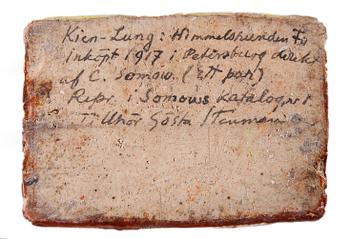 Kien-Lung: Himmelshunden Fu
inköpt 1917 i Petersburg direkt
af C. Somow. (Ett par)
Repr. i Somows katalog nr 1
Tillhör Gösta